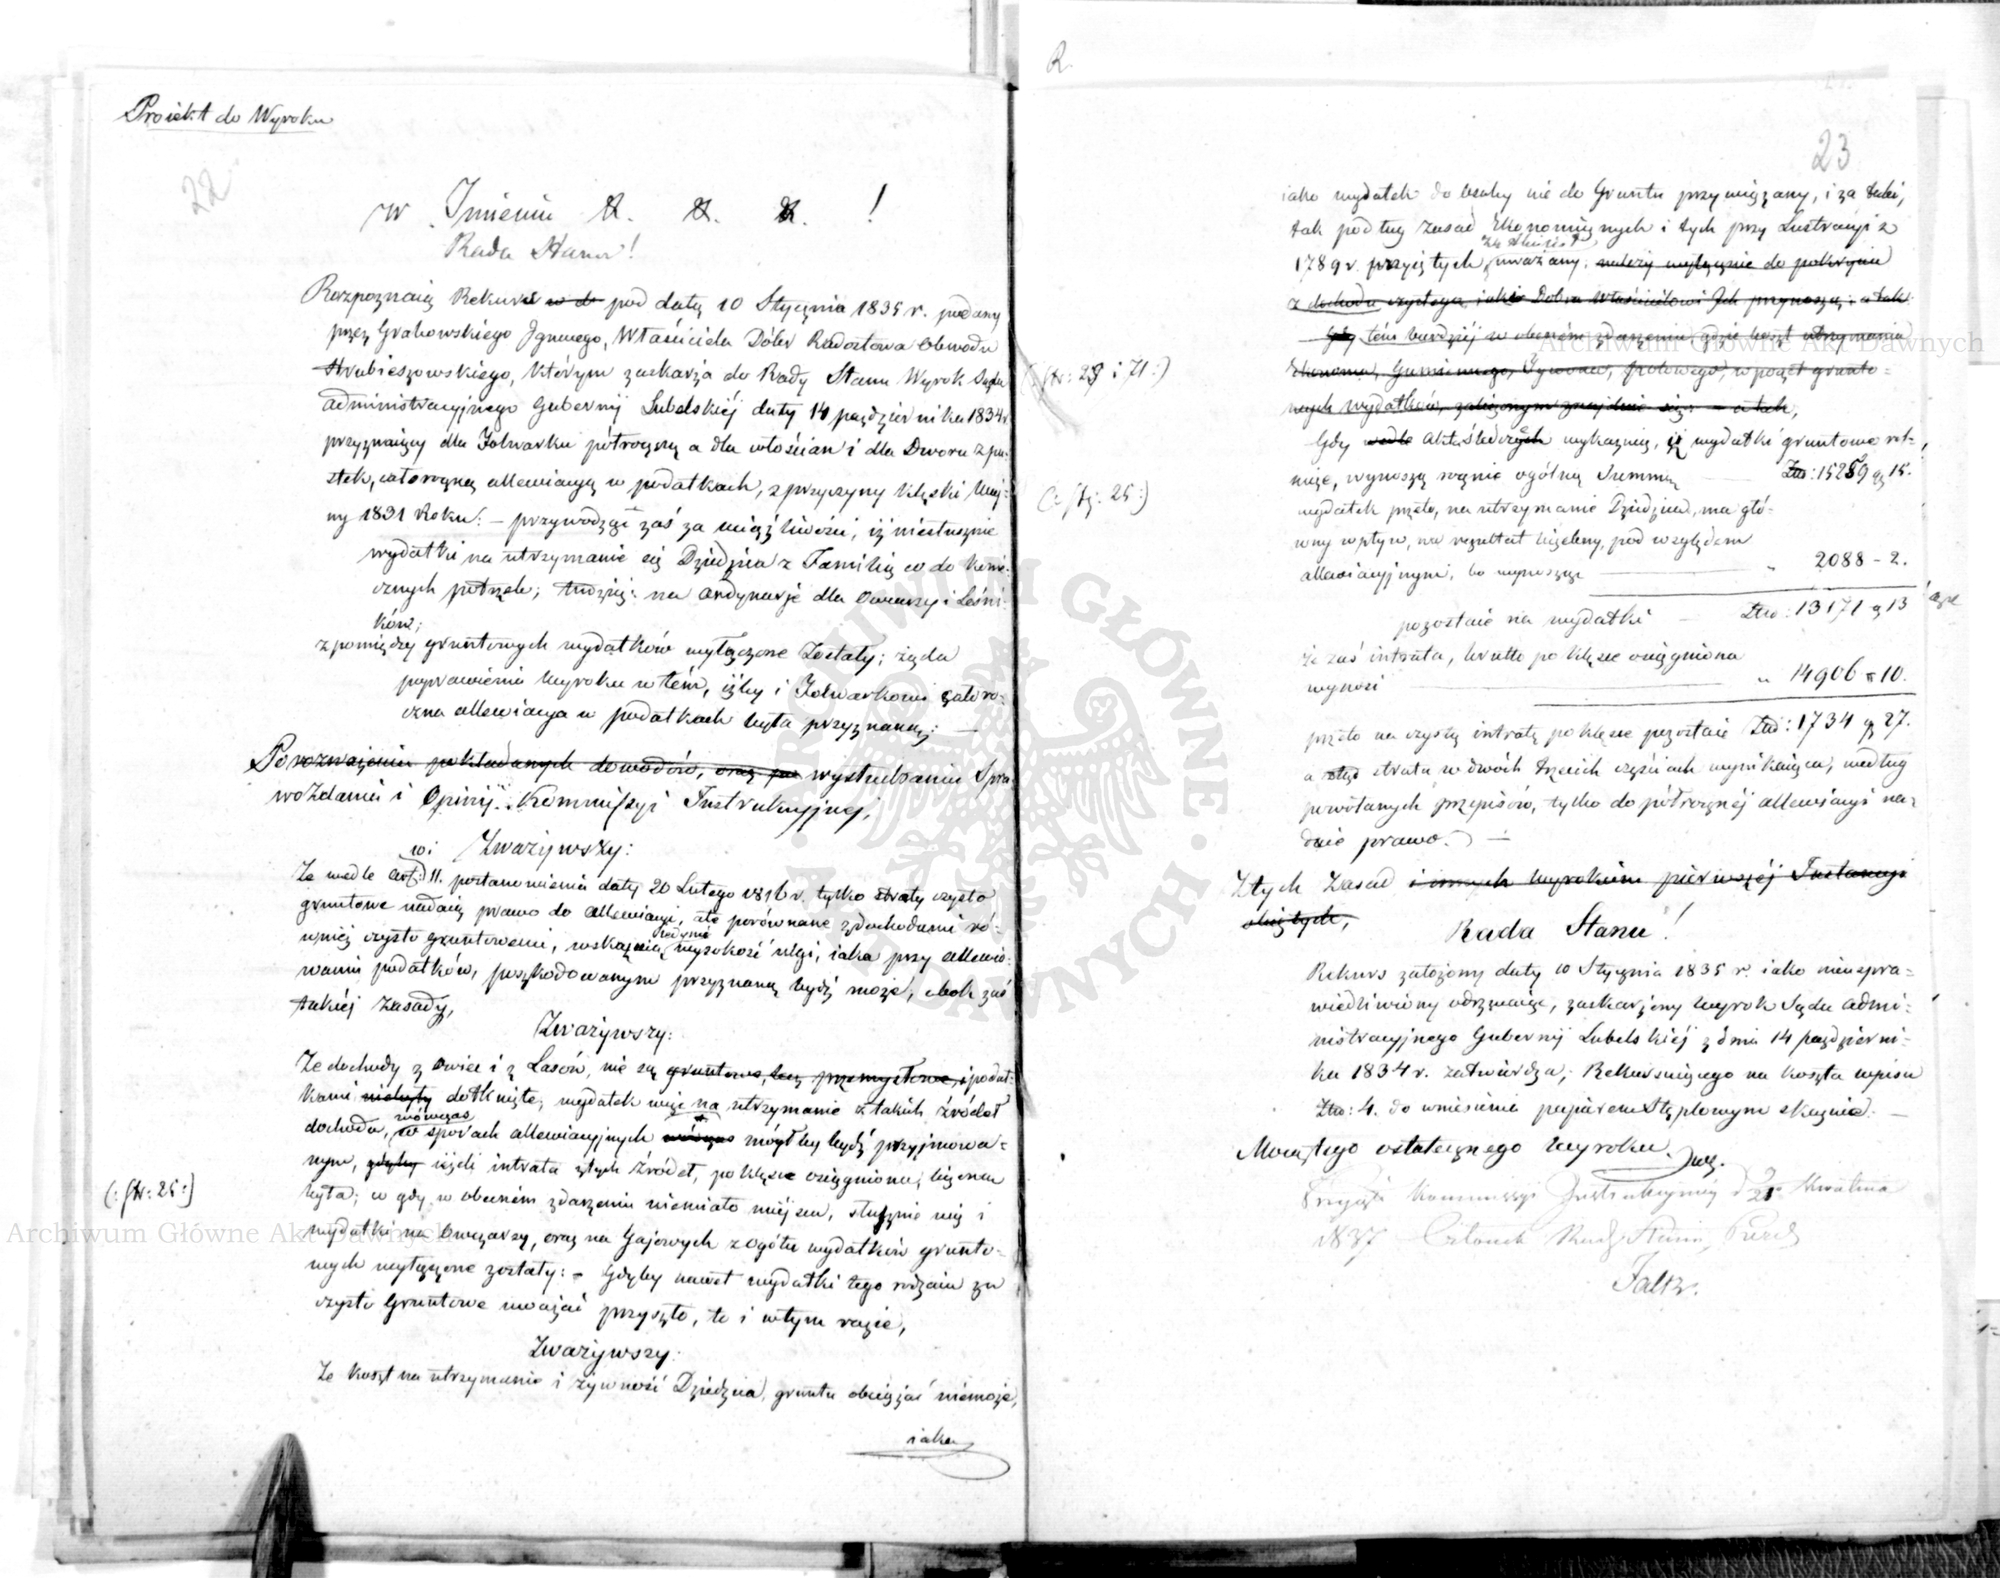 Proiekt do Wyroku
22
w Imieniu N. N. N. !
Rada Stanu!
Rozpoznaiąc Rekurs w do pod datą 10 Stycznia 1835 r. podany
przez Grabowskiego Ignacego, Właściciela Dóbr Radostowa Obwodu
Hrubieszowskiego, którym zaskarża do Rady Stanu Wyrok Sądu
Administracyjnego Gubernij Lubelskiéj daty 14 października 1834 r.
przyznaiący dla Folwarku półroczną a dla włościan i dla Dworu z pu-
stek, całoroczną allewiacyą w podatkach, z przyczyny klęski Woj-
ny 1831 Roku: – przywodząc zaś za iż niesłusznie
wydatki na utrzymanie się Dziedzica z Familią co do konie-
cznych potrzeb; tudzież: na ordynarje dla Owczarzy i Leśni-
ków;
z pomiędzy gruntowych wydatków wyłączone zostały; żąda
poprawienia wyroku w tém, iżby i Folwarkowi cało ro-
czna allewiacya w podatkach była przyznaną: —
Po rozważeniu pokładanych dowodów, oraz po wysłuchaniu Spra
wozdania i Opinij Kommissyi Instrukcyjnej,
Zważywszy:
Że wedle art: 11. postanowienia daty 20 Lutego 1816 r. tylko straty czysto
gruntowe nadaią prawo do allewiacyi, ale porównane z dochodami ró-
wnież czysto gruntowemi, wskazuią jedynie wysokość ulgi, iaka przy allewio-
waniu podatków, poszkodowanym przyznaną bydź może; obok zaś
takiéj zasady,
Zważywszy:
Że dochody z Owiec i z Lasów, nie są gruntowe, lecz przemysłowe, i podat-
kami niebyły dotknięte; wydatek więc na utrzymanie z takich źródeł
dochodu, wówczas w sporach allewiacyjnych wówczas mógłby bydź przyjmowa-
nym, gdyby ieżeli intrata z tych źródeł, po klęsce osiągniona, liczona
była; co gdy w obecném zdarzeniu niemiało miejsca, słusznie więc i
(: str: 25 :)
wydatki na Owczarzy, oraz na Gajowych z ogółu wydatków grunto-
wych wyłączone zostały: – Gdyby nawet wydatki tego rodzaiu za
czysto Gruntowe uważać przyszło, to i w tym razie,
Zważywszy:
Że koszt na utrzymanie i żywność Dziedzica, gruntu obciążać niemoże,
iako
R
23
iako wydatek do osoby nie do Gruntu przywiązany, i za taki,
tak podług zasad Ekonomicznych i tych przy Lustracyi z
1789 r. przyiętych, uważany, należy wyłącznie do pokrycia
z dochodu czystego, iaki Dobra Właścicielowi Ich przynoszą; a tak
Gdy tém bardziéj w obecném zdarzeniu gdzie koszt utrzymania
(: str: 23 i 71 :)
Ekonoma, Gumiennego, Dywona, polowego, w poczet grunto-
wych wydatków, zaliczonym znajduie się: – a tak,
Gdy wedle Akta śledcze wykazuią, iż wydatki gruntowe rol-
nicze, wynoszą rocznie ogólną Summę — Złt: 15259 g 15.
(: str: 25 :)
wydatek przeto, na utrzymanie Dziedzica, ma głó-
wny wpływ, na rezultat liczebny, pod względem
allewiacyjnym, bo wynosząc — " 2088 – 2.
pozostaie na wydatki — Złt: 13171 g 13
że zaś intrata, brutto po klęsce osiągniona
wynosi — " 14906 – 10.
przeto na czystą intratę po klęsce pozostaie Złt: 1734 g 27.
a ztąd strata w dwóch trzecich częściach wynikaiąca, według
powołanych przepisów, tylko do półrocznéj allewiacyi na-
daie prawo. —
Z tych zasad i innych wyrokiem pierwszéj Instancyi
obiętych,
Rada Stanu!
Rekurs założony daty 10 Stycznia 1835 r. iako nieuspra-
wiedliwiony odrzucaiąc, zaskarżony wyrok Sądu Admi-
nistracyjnego Gubernij Lubelskiéj z dnia 14 październi-
ka 1834 r. zatwierdza; Rekursuiącego na koszta wpisu
Złt: 4. do wniesienia papierem stęplowym skazuie. —
Mocą tego ostatecznego wyroku.
Przyięty Kommissyi Instrukcyjnéj d 21 Kwietnia
1837 Członek Rady Stanu
Faltz.
Archiwum Główne Akt Dawnych
Archiwum Główne Akt Dawnych
ARCHIWUM GŁÓWNE AKT DAWNYCH